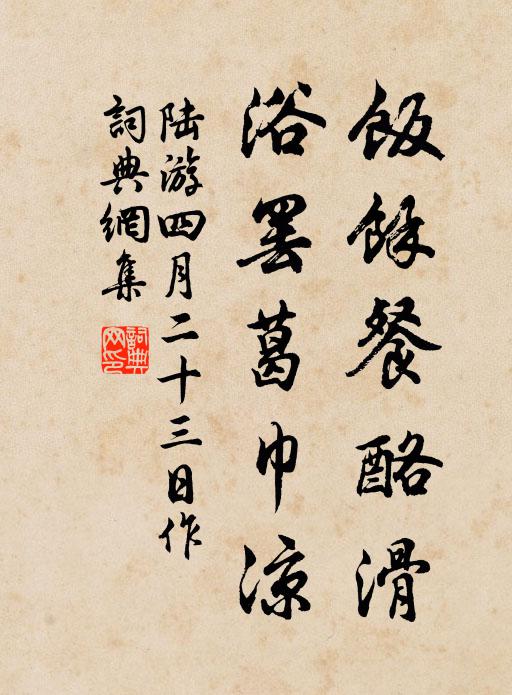 飯餘餐酪滑
浴罷葛巾凉
陆游四月二十三日作
詞典網集
詞典網印